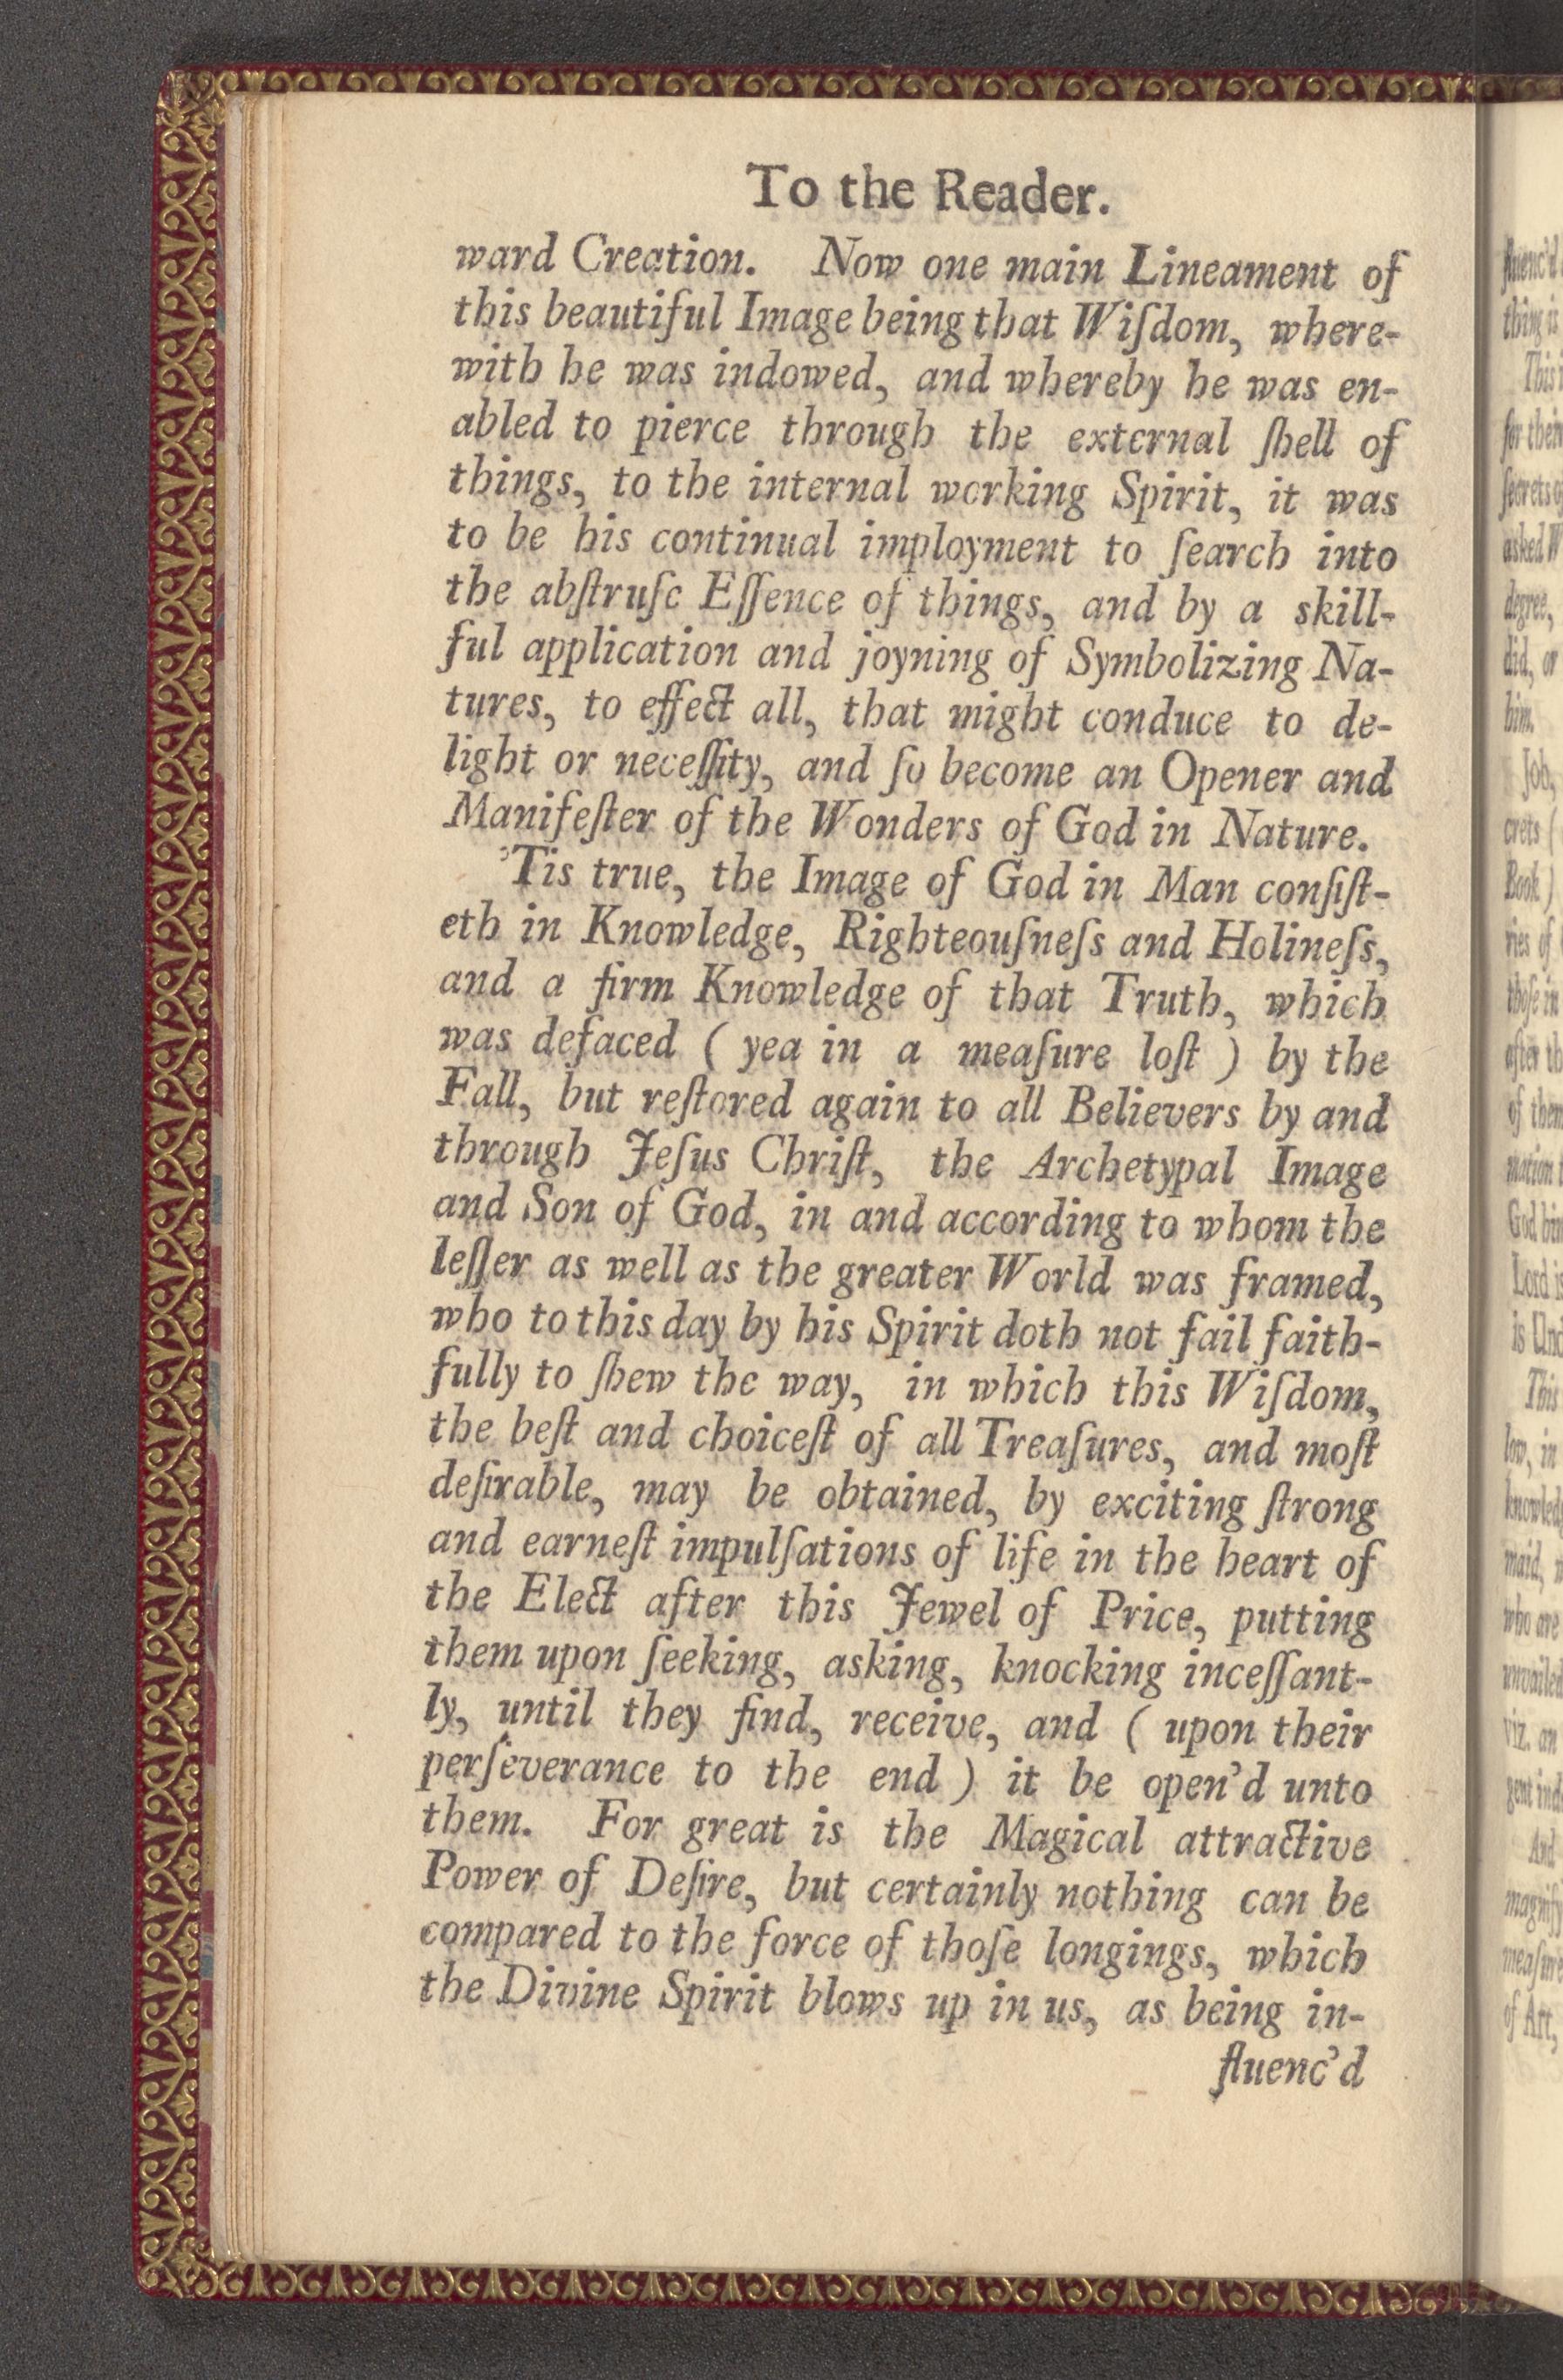 To the Reader.
ward Creation. Now one main Lineament of
this beautiful Image being that Wiſdom, where-
with he was indowed, and whereby he was en-
abled to pierce through the external ſhell of
things, to the internal working Spirit, it was
to be his continual imployment to ſearch into
the abſtruſe Eſſence of things, and by a skill-
ful application and joyning of Symbolizing Na-
tures, to effect all, that might conduce to de-
light or neceſſity, and ſo become an Opener and
Manifeſter of the Wonders of God in Nature.
'Tis true, the Image of God in Man conſiſt-
eth in Knowledge, Righteouſneſs and Holineſs,
and a firm Knowledge of that Truth, which
was defaced ( yea in a meaſure loſt ) by the
Fall, but reſtored again to all Believers by and
through Jeſus Chriſt, the Archetypal Image
and Son of God, in and according to whom the
leſſer as well as the greater World was framed,
who to this day by his Spirit doth not fail faith-
fully to ſhew the way, in which this Wiſdom,
the beſt and choiceſt of all Treaſures, and moſt
deſirable, may be obtained, by exciting ſtrong
and earneſt impulſations of life in the heart of
the Elect after this Jewel of Price, putting
them upon ſeeking, asking, knocking inceſſant-
ly, until they find, receive, and ( upon their
perſeverance to the end ) it be open'd unto
them. For great is the Magical attractive
Power of Deſire, but certainly nothing can be
compared to the force of thoſe longings, which
the Divine Spirit blows up in us, as being in-
fluenc'd